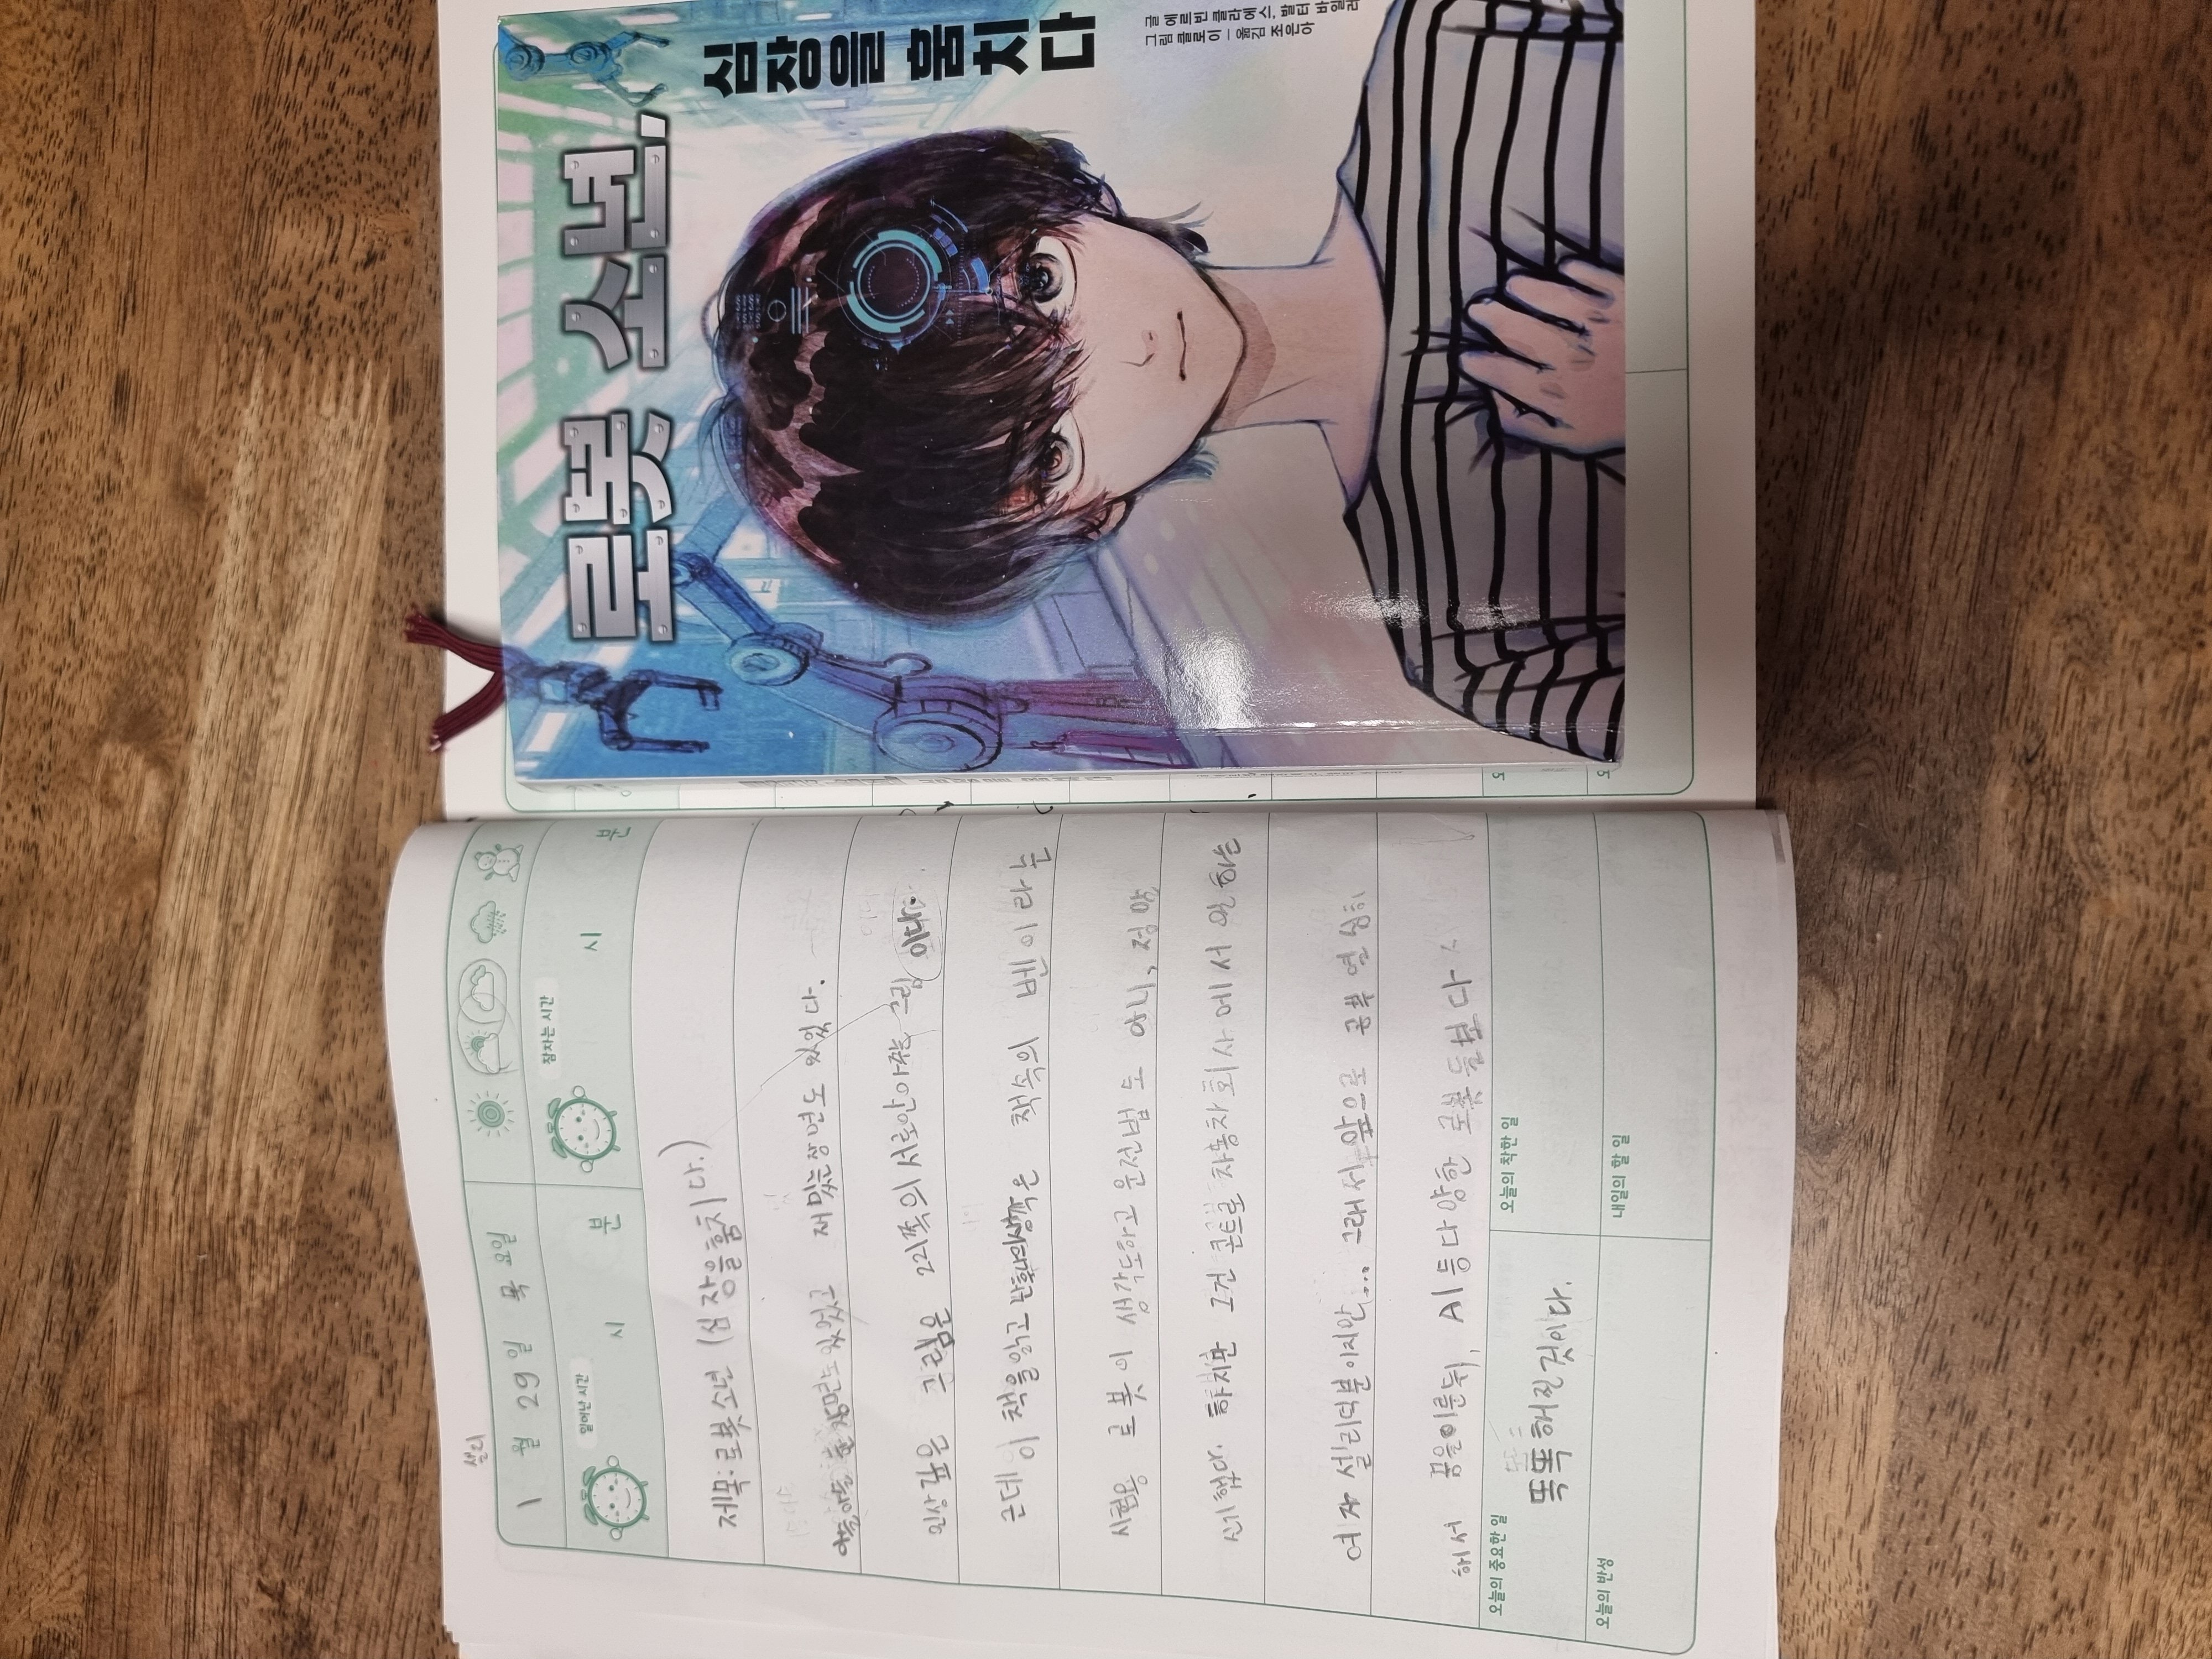 로봇 소년,
심장을 훔치다
글 에르빈 클라에스, 발터 바일러
그림 클로이 – 옮김 조은아
샐리
1 월 29 일 목 요일
일어난 시간 시 분
잠자는 시간 시 분
제목: 로봇 소년 (심장을 훔치다.)
마음 아플 장면도 있었고 재밌는 장면도 있었다.
인상 깊은 그림은 221쪽의 서로 안아주는 그림 이다.
근데 이 책을 읽고 난 후 나의 생각은 책속의 벤 이라는
시험용 로봇이 생각도하고 운전법도 아니, 정말
신기했다. 하지만 그건 콘트롤 자동차 회사에서 일하는
여자 샐리 덕분이지만... 그래서 앞으로 공부 열심히
해서 꿈을 이룬 뒤, AI 등 다양한 로봇들보다
똑똑해질 것이다.
오늘의 중요한 일
오늘의 착한 일
오늘의 반성
내일의 할 일